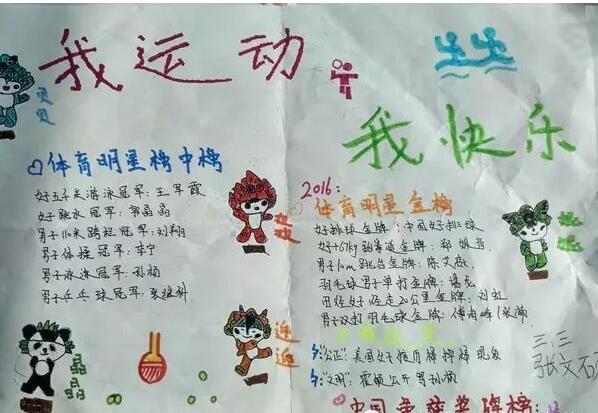 我运动
我快乐
贝贝
体育明星榜中榜
女子五千米游泳冠军：王军霞
女子跳水冠军：郭晶晶
男子110米跨栏冠军：刘翔
男子体操冠军：李宁
男子游泳冠军：孙杨
男子乒乓球冠军：张继科
晶晶
欢欢
迎迎
2016：
体育明星金榜
女子排球金牌：中国女子排球
女子67kg跆拳道金牌：郑姝音
男子10m跳台金牌：陈艾森
羽毛球男子单打金牌：谌龙
田径女子竞走20公里金牌：刘虹
男子双打羽毛球金牌：傅海峰/张楠
妮妮
公正：美国女子接力棒掉棒
三三
张文
中国